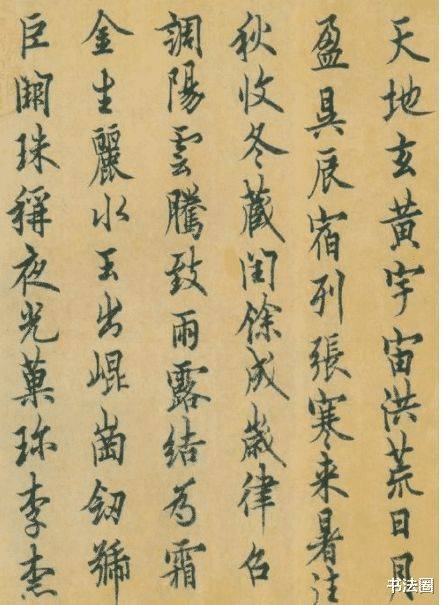 天地玄黃宇宙洪荒日月
盈昃辰宿列張寒来暑往
秋收冬藏閏餘成歲律召
調陽雲騰致雨露結為霜
金生麗水玉出崐崗釼號
巨闕珠稱夜光菓珎李柰
书法圈